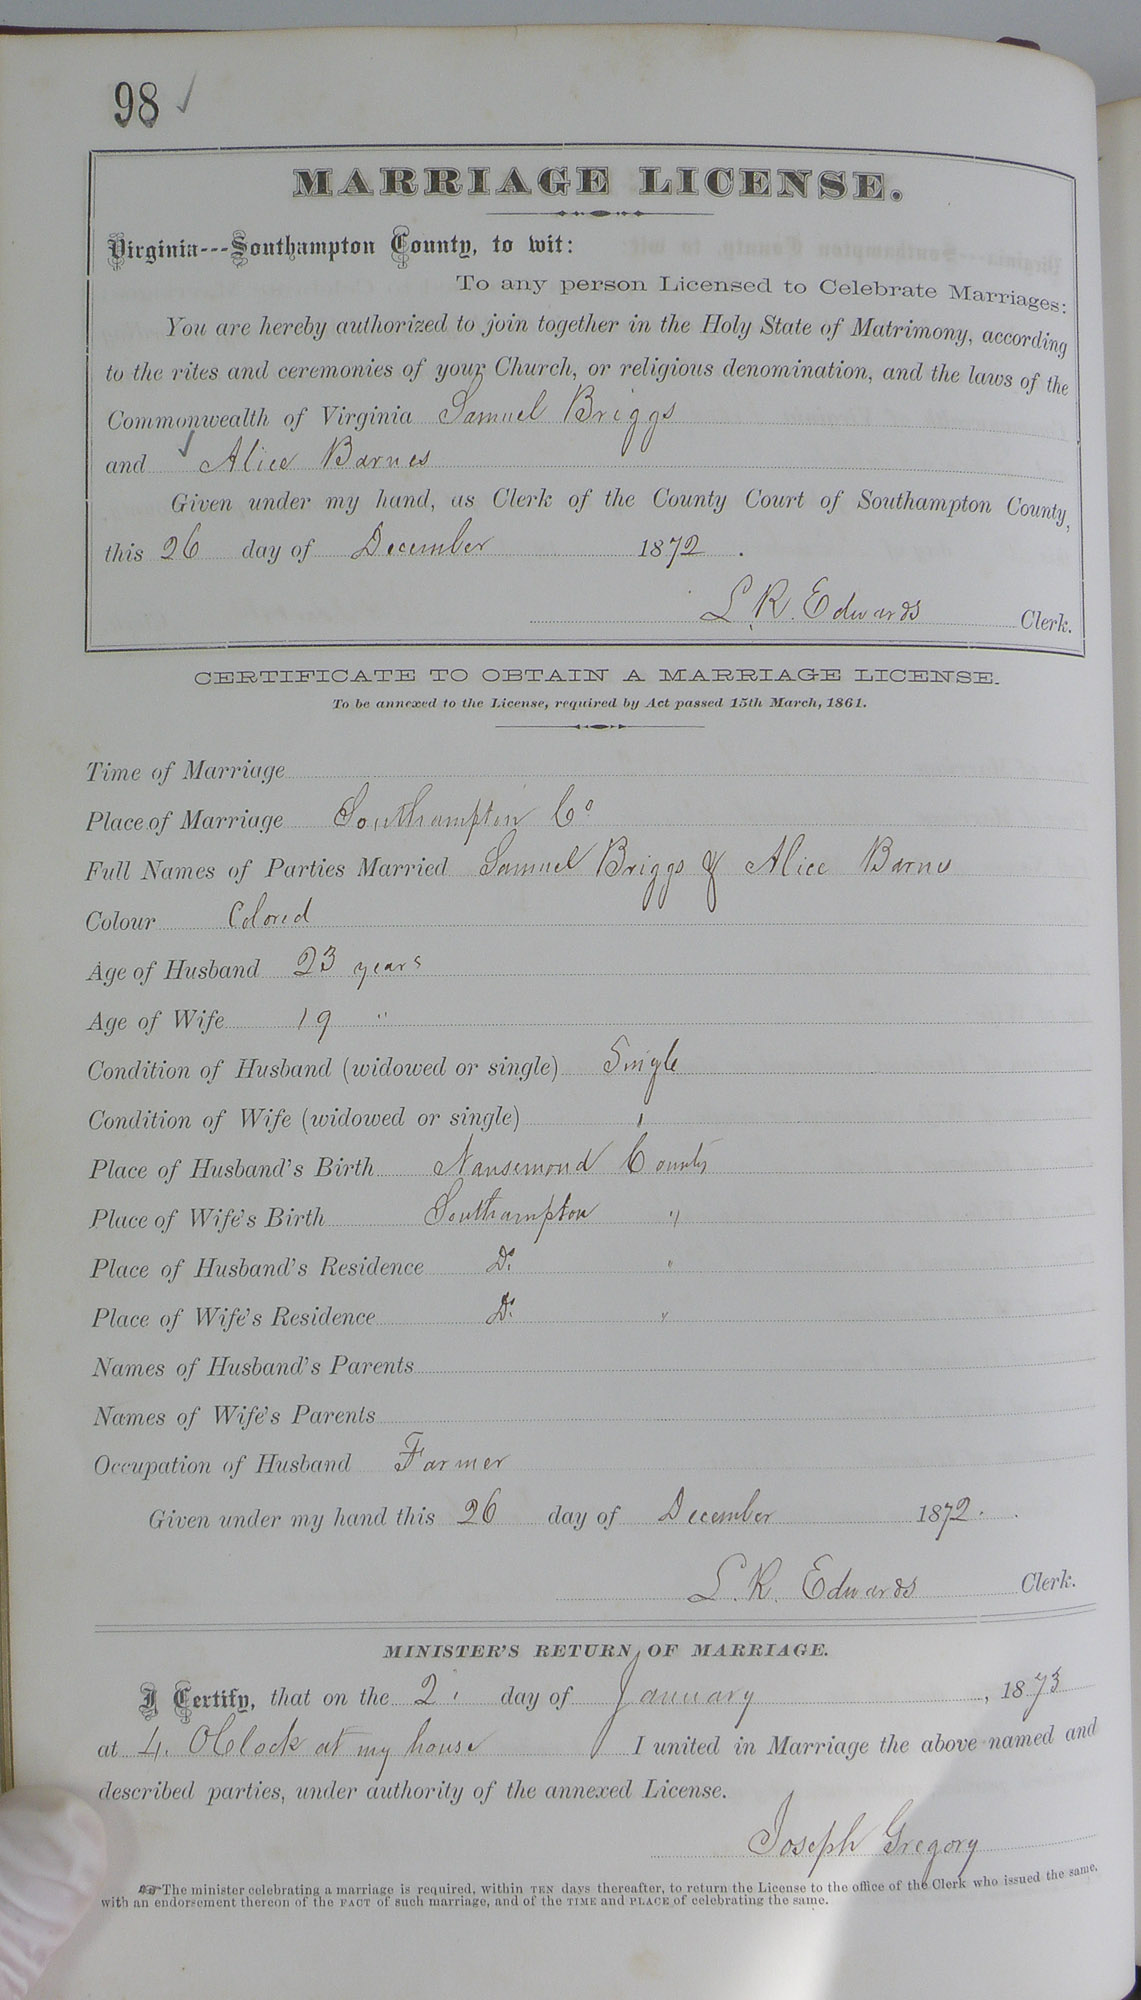 98 ✓
MARRIAGE LICENSE.
Virginia---Southampton County, to wit:
To any person Licensed to Celebrate Marriages:
You are hereby authorized to join together in the Holy State of Matrimony, according
to the rites and ceremonies of your Church, or religious denomination, and the laws of the
Commonwealth of Virginia Samuel Briggs
and ✓ Alice Barnes
Given under my hand, as Clerk of the County Court of Southampton County,
this 26 day of December 1872.
L. R. Edwards Clerk.
CERTIFICATE TO OBTAIN A MARRIAGE LICENSE.
To be annexed to the License, required by Act passed 15th March, 1861.
Time of Marriage
Place of Marriage Southampton Co
Full Names of Parties Married Samuel Briggs & Alice Barnes
Colour Colored
Age of Husband 23 years
Age of Wife 19 "
Condition of Husband (widowed or single) Single
Condition of Wife (widowed or single) "
Place of Husband's Birth Nansemond County
Place of Wife's Birth Southampton "
Place of Husband's Residence Do "
Place of Wife's Residence Do "
Names of Husband's Parents
Names of Wife's Parents
Occupation of Husband Farmer
Given under my hand this 26 day of December 1872.
L. R. Edwards Clerk.
MINISTER'S RETURN OF MARRIAGE.
I Certify, that on the 2. day of January, 1873
at 4. OClock at my house I united in Marriage the above named and
described parties, under authority of the annexed License.
Joseph Gregory
☞The minister celebrating a marriage is required, within TEN days thereafter, to return the License to the office of the Clerk who issued the same,
with an endorsement thereon of the FACT of such marriage, and of the TIME and PLACE of celebrating the same.